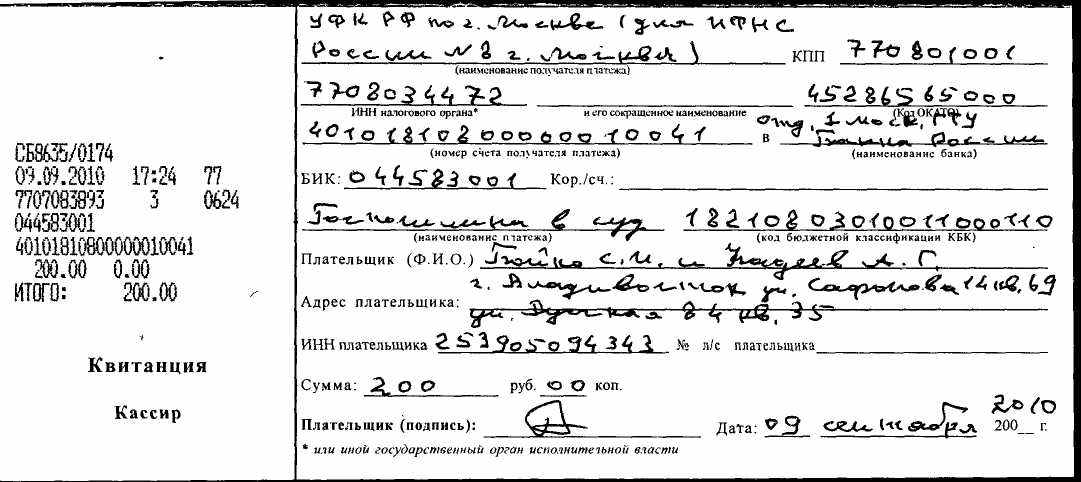 СБ8635/0174
09.09.2010 17:24 77
7707083893 3 0624
044583001
40101810800000010041
200.00 0.00
ИТОГО: 200.00
Квитанция
Кассир
УФК РФ по г. Москве (для ИФНС
России N 8 г. Москвы) КПП 770801001
(наименование получателя платежа)
7708034472 45286565000
ИНН налогового органа* и его сокращенное наименование (Код ОКАТО)
40101810800000010041 в отд. 1 моск. ГТУ
Банка России
(номер счета получателя платежа) (наименование банка)
БИК: 044583001 Кор./сч.:
Госпошлина в суд 18210803010011000110
(наименование платежа) (код бюджетной классификации КБК)
Плательщик (Ф.И.О.) Бойко С.И. и А.Г.
г. Владивосток ул. Сафонова 14 кв. 69
Адрес плательщика: ул. Русская 84 кв. 35
ИНН плательщика 253905094343 № л/с плательщика
Сумма: 200 руб. 00 коп.
Плательщик (подпись): Дата: 09 сентября 2010 200__ г.
* или иной государственный орган исполнительной власти